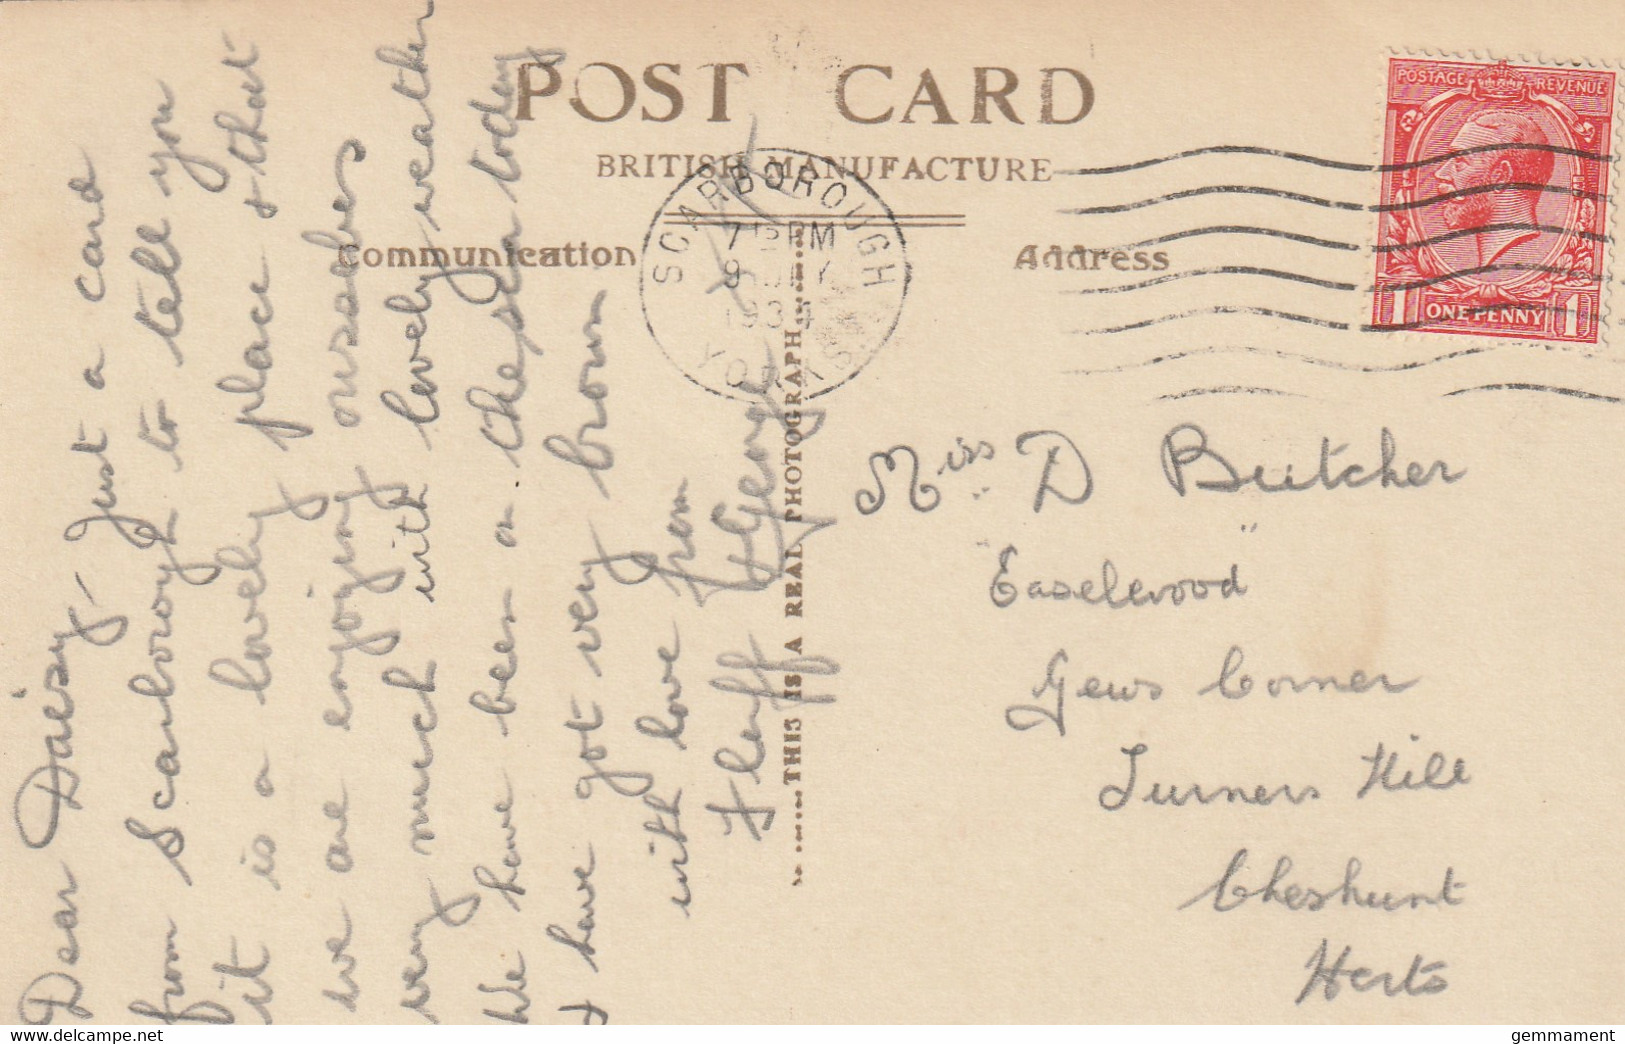 POST CARD
BRITISH MANUFACTURE
Communication
Address
SCARBOROUGH
7 15 PM
9 JLY
1934
YORKS.
POSTAGE REVENUE
1 ONE PENNY 1D
THIS IS A REAL PHOTOGRAPH
Dear Daisy - Just a card
from Scarborough to tell you
it is a lovely place & that
we are enjoying ourselves
very much with lovely weather
We have been on the sea today
& have got very brown
with love from
Fleff & George
Miss D Butcher
"Easelwood"
Yews Corner
Turners Hill
Cheshunt
Herts
https://www.delcampe.net
gemmament